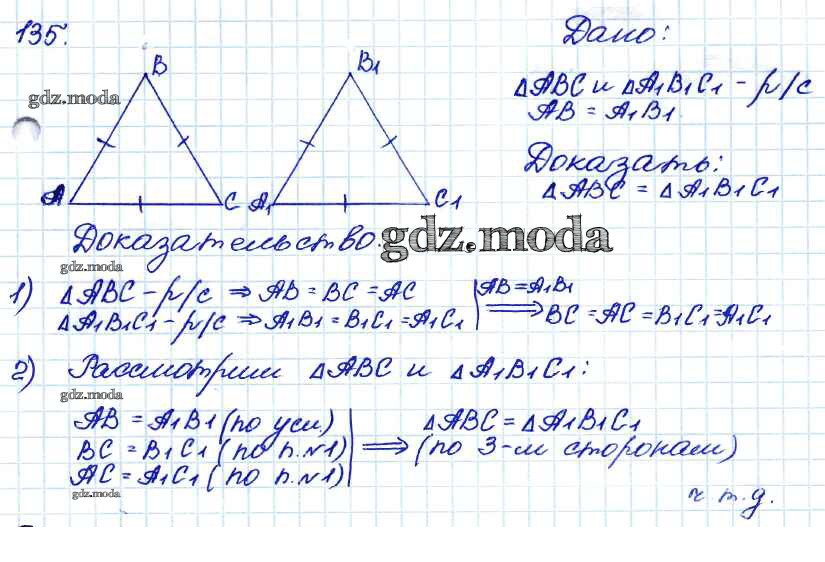 135.
Дано:
B
B1
gdz.moda
ΔABC и ΔA1B1C1 - р/с
AB = A1B1
Доказать:
ΔABC = ΔA1B1C1
A
C
A1
C1
Доказательство.
gdz.moda
gdz.moda
1) ΔABC - р/с ⇒ AB = BC = AC
AB = A1B1
ΔA1B1C1 - р/с ⇒ A1B1 = B1C1 = A1C1 ⇒ BC = AC = B1C1 = A1C1
2) Рассмотрим ΔABC и ΔA1B1C1:
gdz.moda
AB = A1B1 (по усл.)
BC = B1C1 (по п.№1)
AC = A1C1 (по п.№1)
⇒ ΔABC = ΔA1B1C1
(по 3-м сторонам)
gdz.moda
ч.т.д.